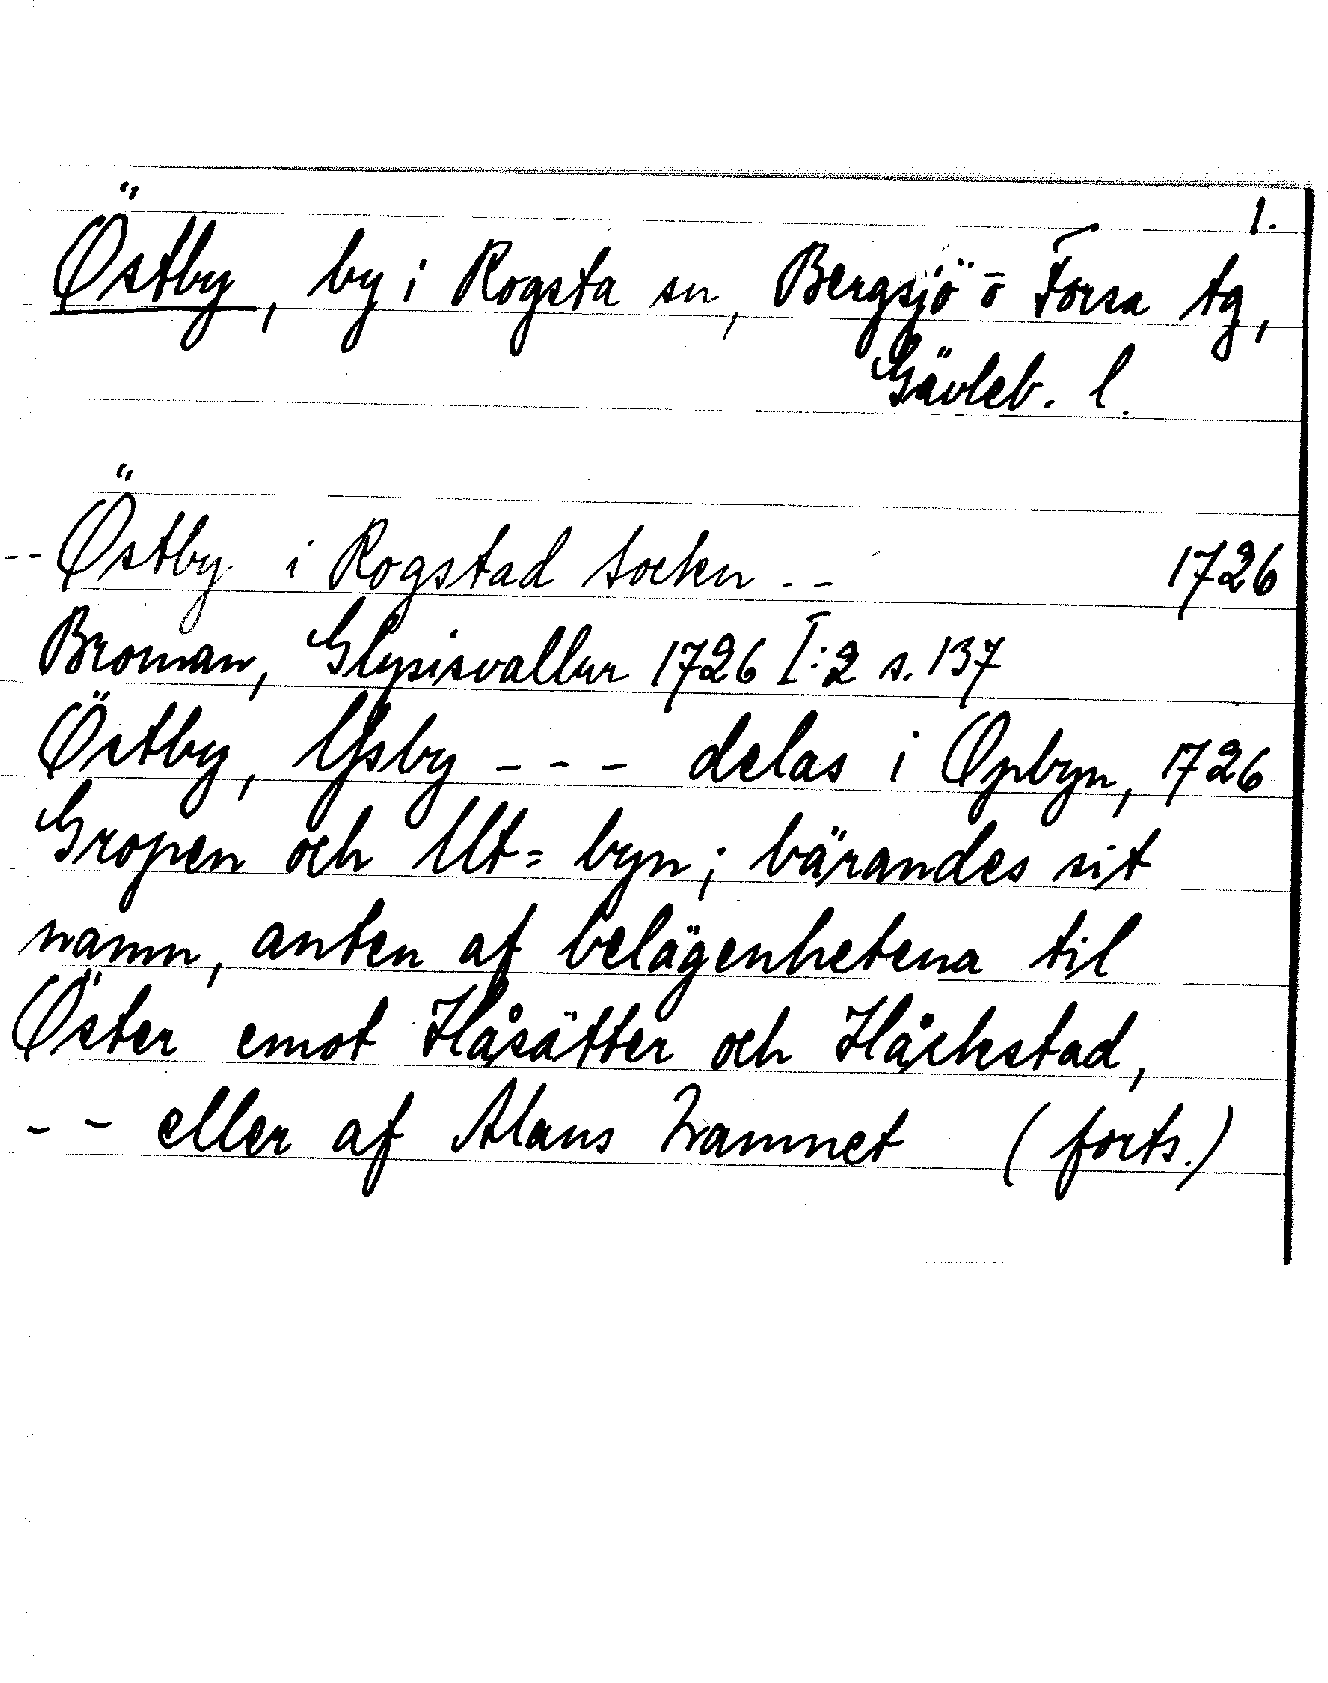 1.
Östby, by i Rogsta sn, Bergsjö o Forsa tg,
Gävleb. l.
-- Östby i Rogstad socken --
1726
Broman, Glysisvallur 1726 I:2 s. 137
Östby, Ysby --- delas i Opbyn, 1726
Gropen och Ut= byn; bärandes sit
namn, anten af belägenhetena til
Öster emot Håsätter och Håckstad,
-- eller af Mans namnet (forts.)